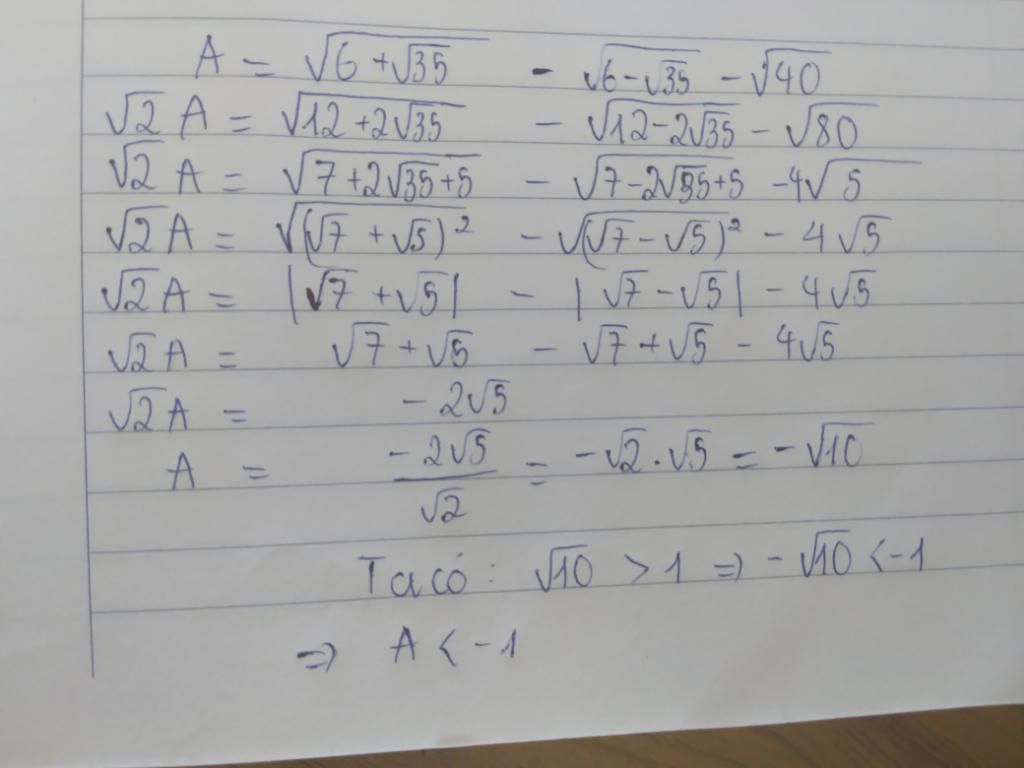 A = √(6 + √35) - √(6 - √35) - √40
√2 A = √(12 + 2√35) - √(12 - 2√35) - √80
√2 A = √(7 + 2√35 + 5) - √(7 - 2√35 + 5) - 4√5
√2 A = √((√7 + √5)²) - √((√7 - √5)²) - 4√5
√2 A = |√7 + √5| - |√7 - √5| - 4√5
√2 A = √7 + √5 - √7 + √5 - 4√5
√2 A = - 2√5
A = (- 2√5)/√2 = -√2 . √5 = -√10
Ta có : √10 > 1 => - √10 < -1
=> A < -1